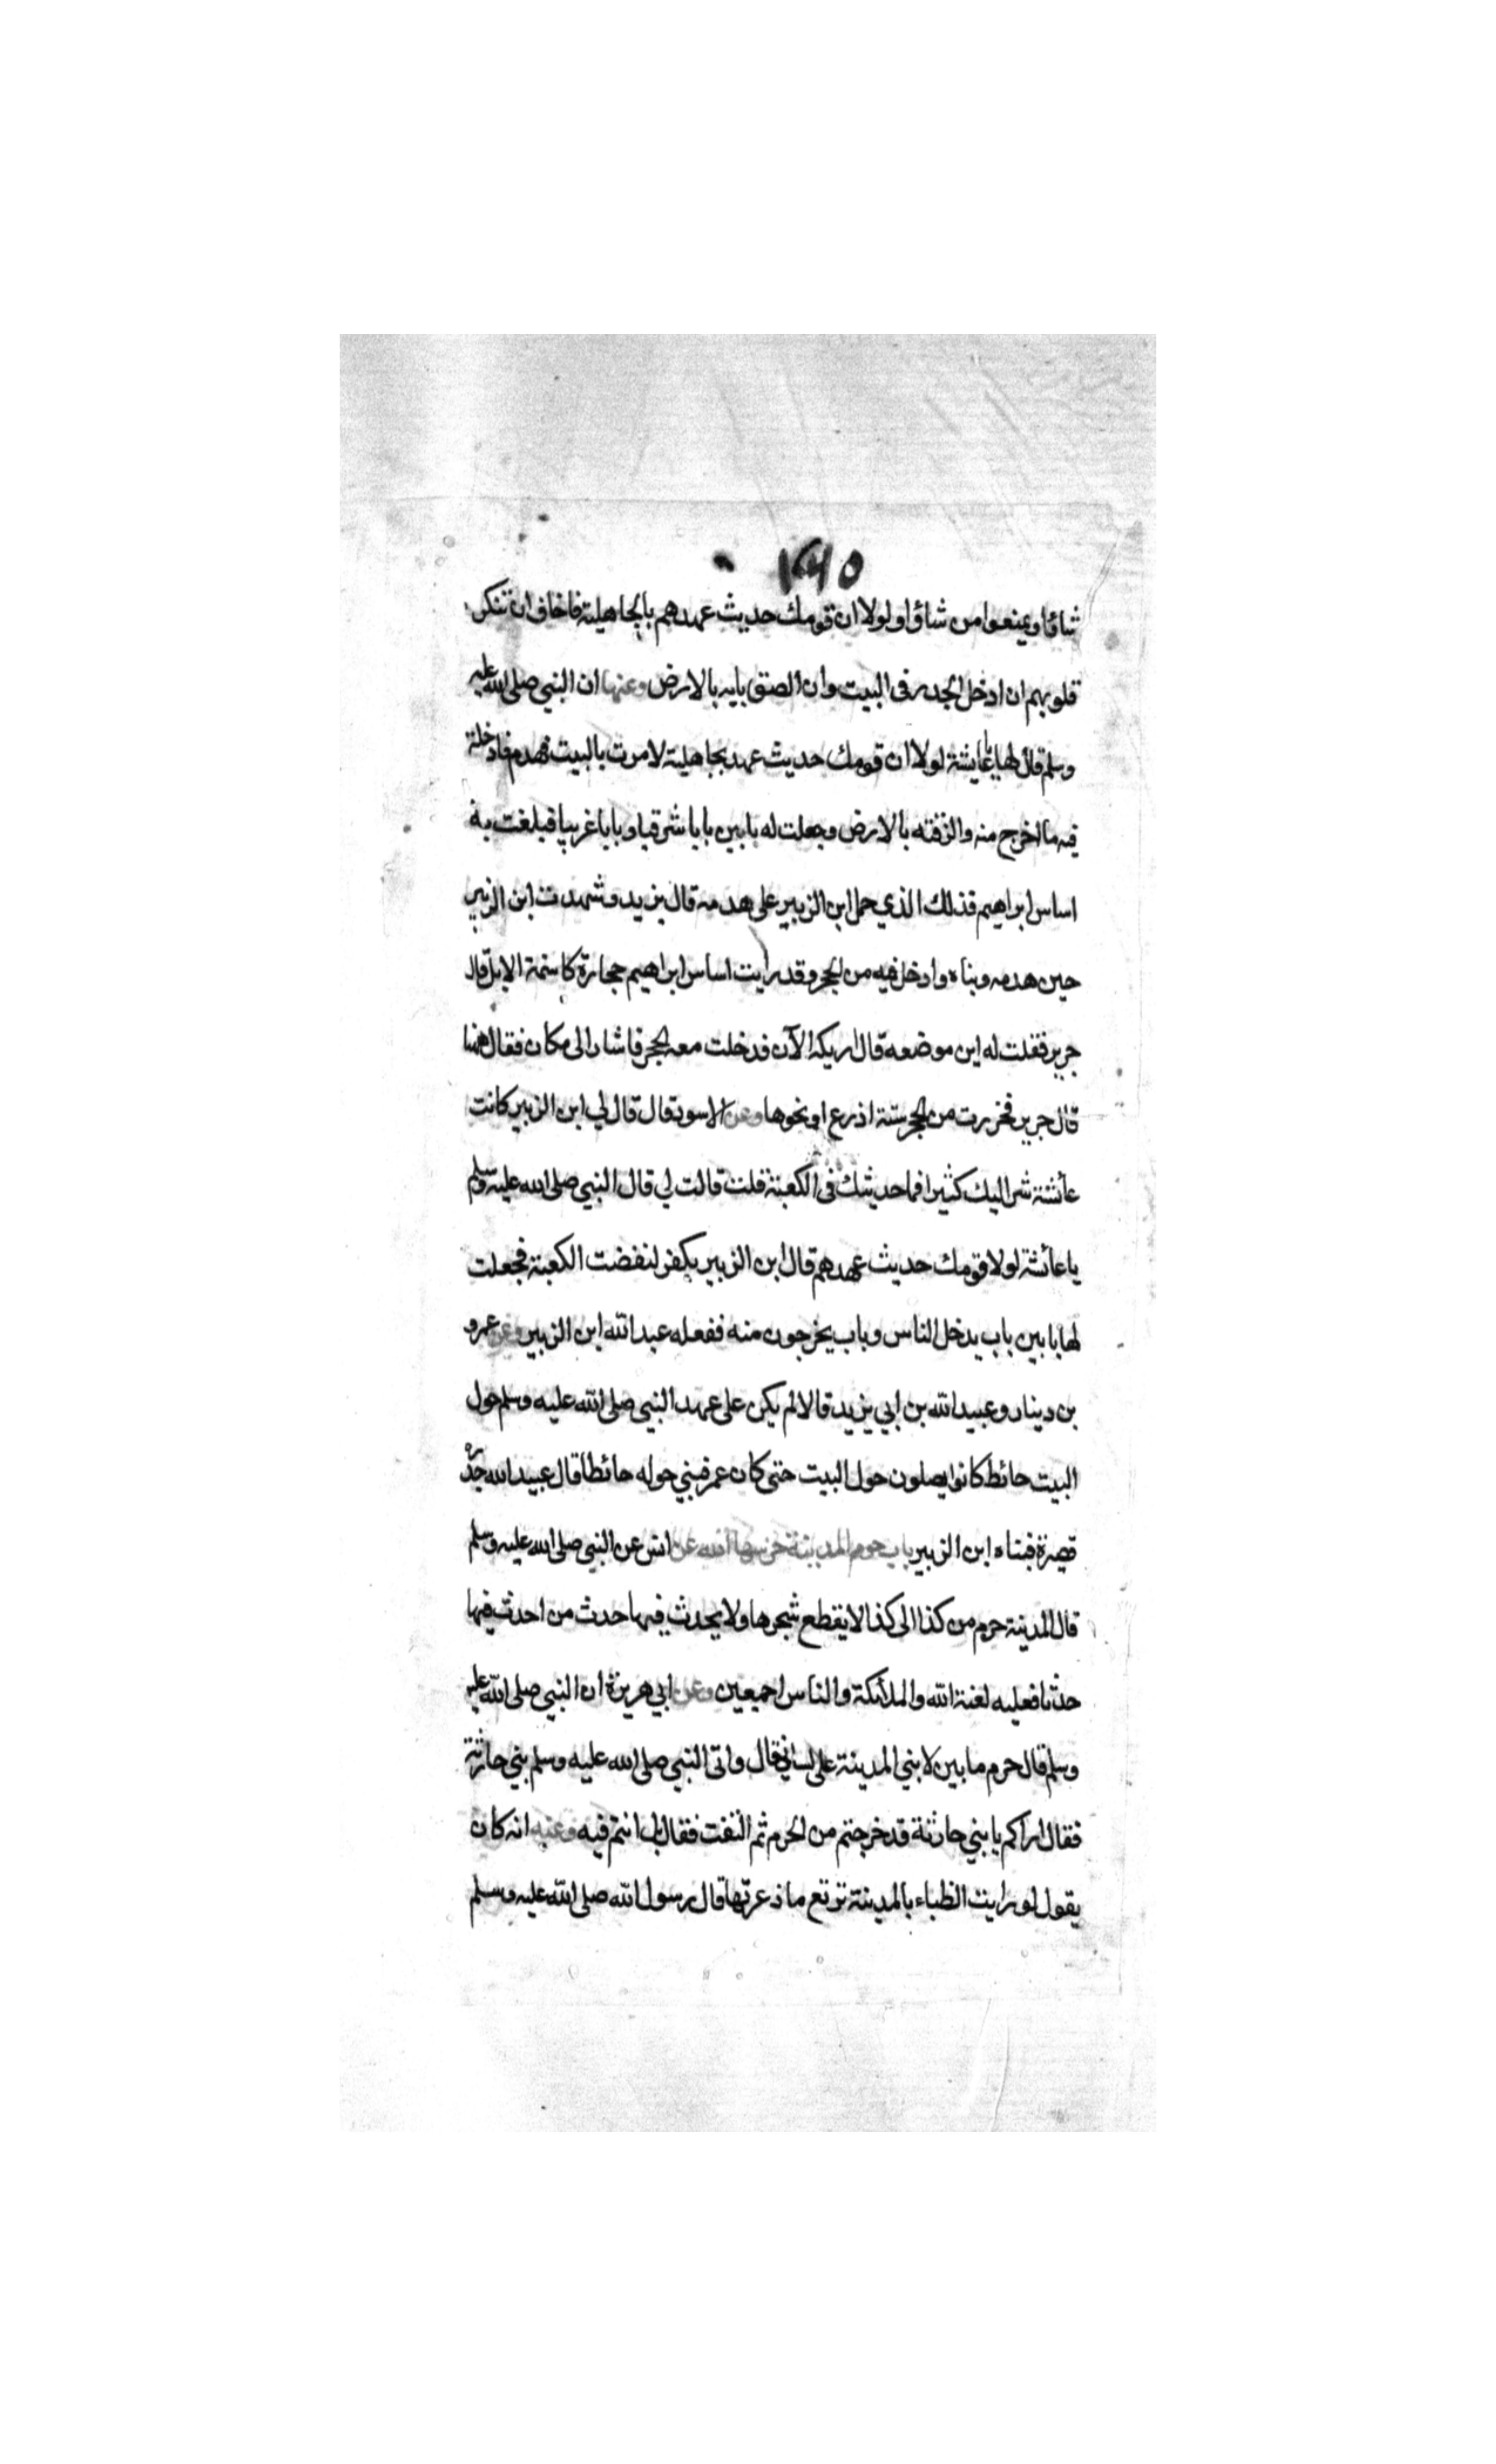 ١٢١٥
شاؤا ويمنعوا من شاؤا ولولا ان قومك حديث عهدهم بالجاهلية فاخاف ان تنكر
قلوبهم ان ادخل الجدر في البيت وان الصق بابه بالارض وعنها ان النبي صلى الله عليه
وسلم قال لها يا عايشة لولا ان قومك حديث عهد بجاهلية لامرت بالبيت فهدم فادخلت
فيه ما اخرج منه والزقته بالارض وجعلت له بابين بابا شرقيا وبابا غربيا فبلغت به
اساس ابراهيم فذلك الذي حمل ابن الزبير على هدمه قال يزيد وشهدت ابن الزبير
حين هدمه وبناه وادخل فيه من الحجر وقد رايت اساس ابراهيم حجارة كاسنمة الابل قال
جرير فقلت له اين موضعه قال اريكه الآن فدخلت معه الحجر فاشار الى مكان فقال ههنا
قال جرير فحزرت من الحجر ستة اذرع او نحوها وعن الاسود قال قال لي ابن الزبير كانت
عائشة تسر اليك كثيرا فما حديثك في الكعبة قلت قالت لي قال النبي صلى الله عليه وسلم
يا عائشة لولا قومك حديث عهدهم قال ابن الزبير بكفر لنقضت الكعبة فجعلت
لها بابين باب يدخل الناس وباب يخرجون منه ففعله عبد الله ابن الزبير وعن عمرو
بن دينار وعبيد الله بن ابي يزيد قالا لم يكن على عهد النبي صلى الله عليه وسلم حول
البيت حائط كانوا يصلون حول البيت حتى كان عمر فبني حوله حائطا قال عبيد الله جدره
قصيرة فبناه ابن الزبير باب حرم المدينة حرسها الله عن انس عن النبي صلى الله عليه وسلم
قال المدينة حرم من كذا الى كذا لا يقطع شجرها ولا يحدث فيها حدث من احدث فيها
حدثا فعليه لعنة الله والملائكة والناس اجمعين وعن ابي هريرة ان النبي صلى الله عليه
وسلم قال حرم ما بين لابتي المدينة على لساني قال واتى النبي صلى الله عليه وسلم بني حارثة
فقال اراكم يا بني حارثة قد خرجتم من الحرم ثم التفت فقال بل انتم فيه وعنه انه كان
يقول لو رايت الظباء بالمدينة ترتع ما ذعرتها قال رسول الله صلى الله عليه وسلم